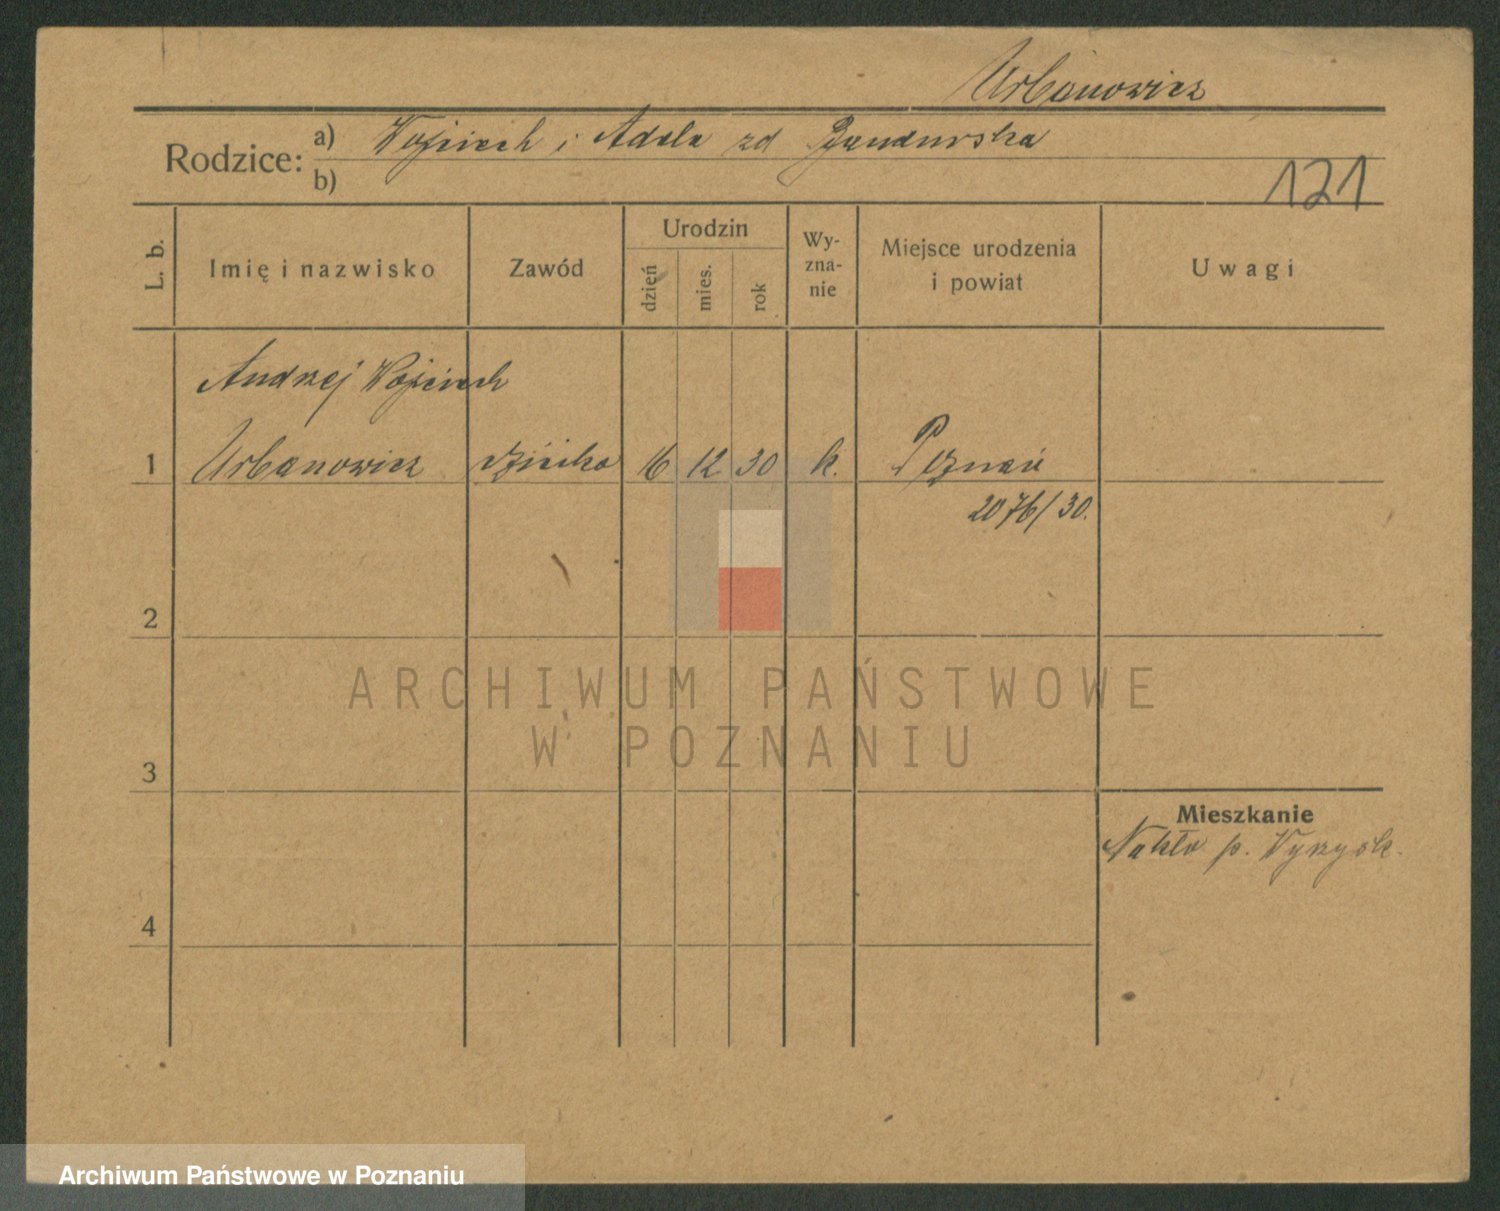 Urbanowicz
Rodzice: a) Wojciech i Adela zd
b)
121
L. b.
Imię i nazwisko
Zawód
Urodzin
dzień
mies.
rok
Wy-
zna-
nie
Miejsce urodzenia
i powiat
Uwagi
Andrzej Wojciech
1 Urbanowicz dziecko 16 12 30 k. Poznań
2076/30.
2
3
Mieszkanie
Nakło p. Wyrzysk.
4
ARCHIWUM PAŃSTWOWE
W POZNANIU
Archiwum Państwowe w Poznaniu